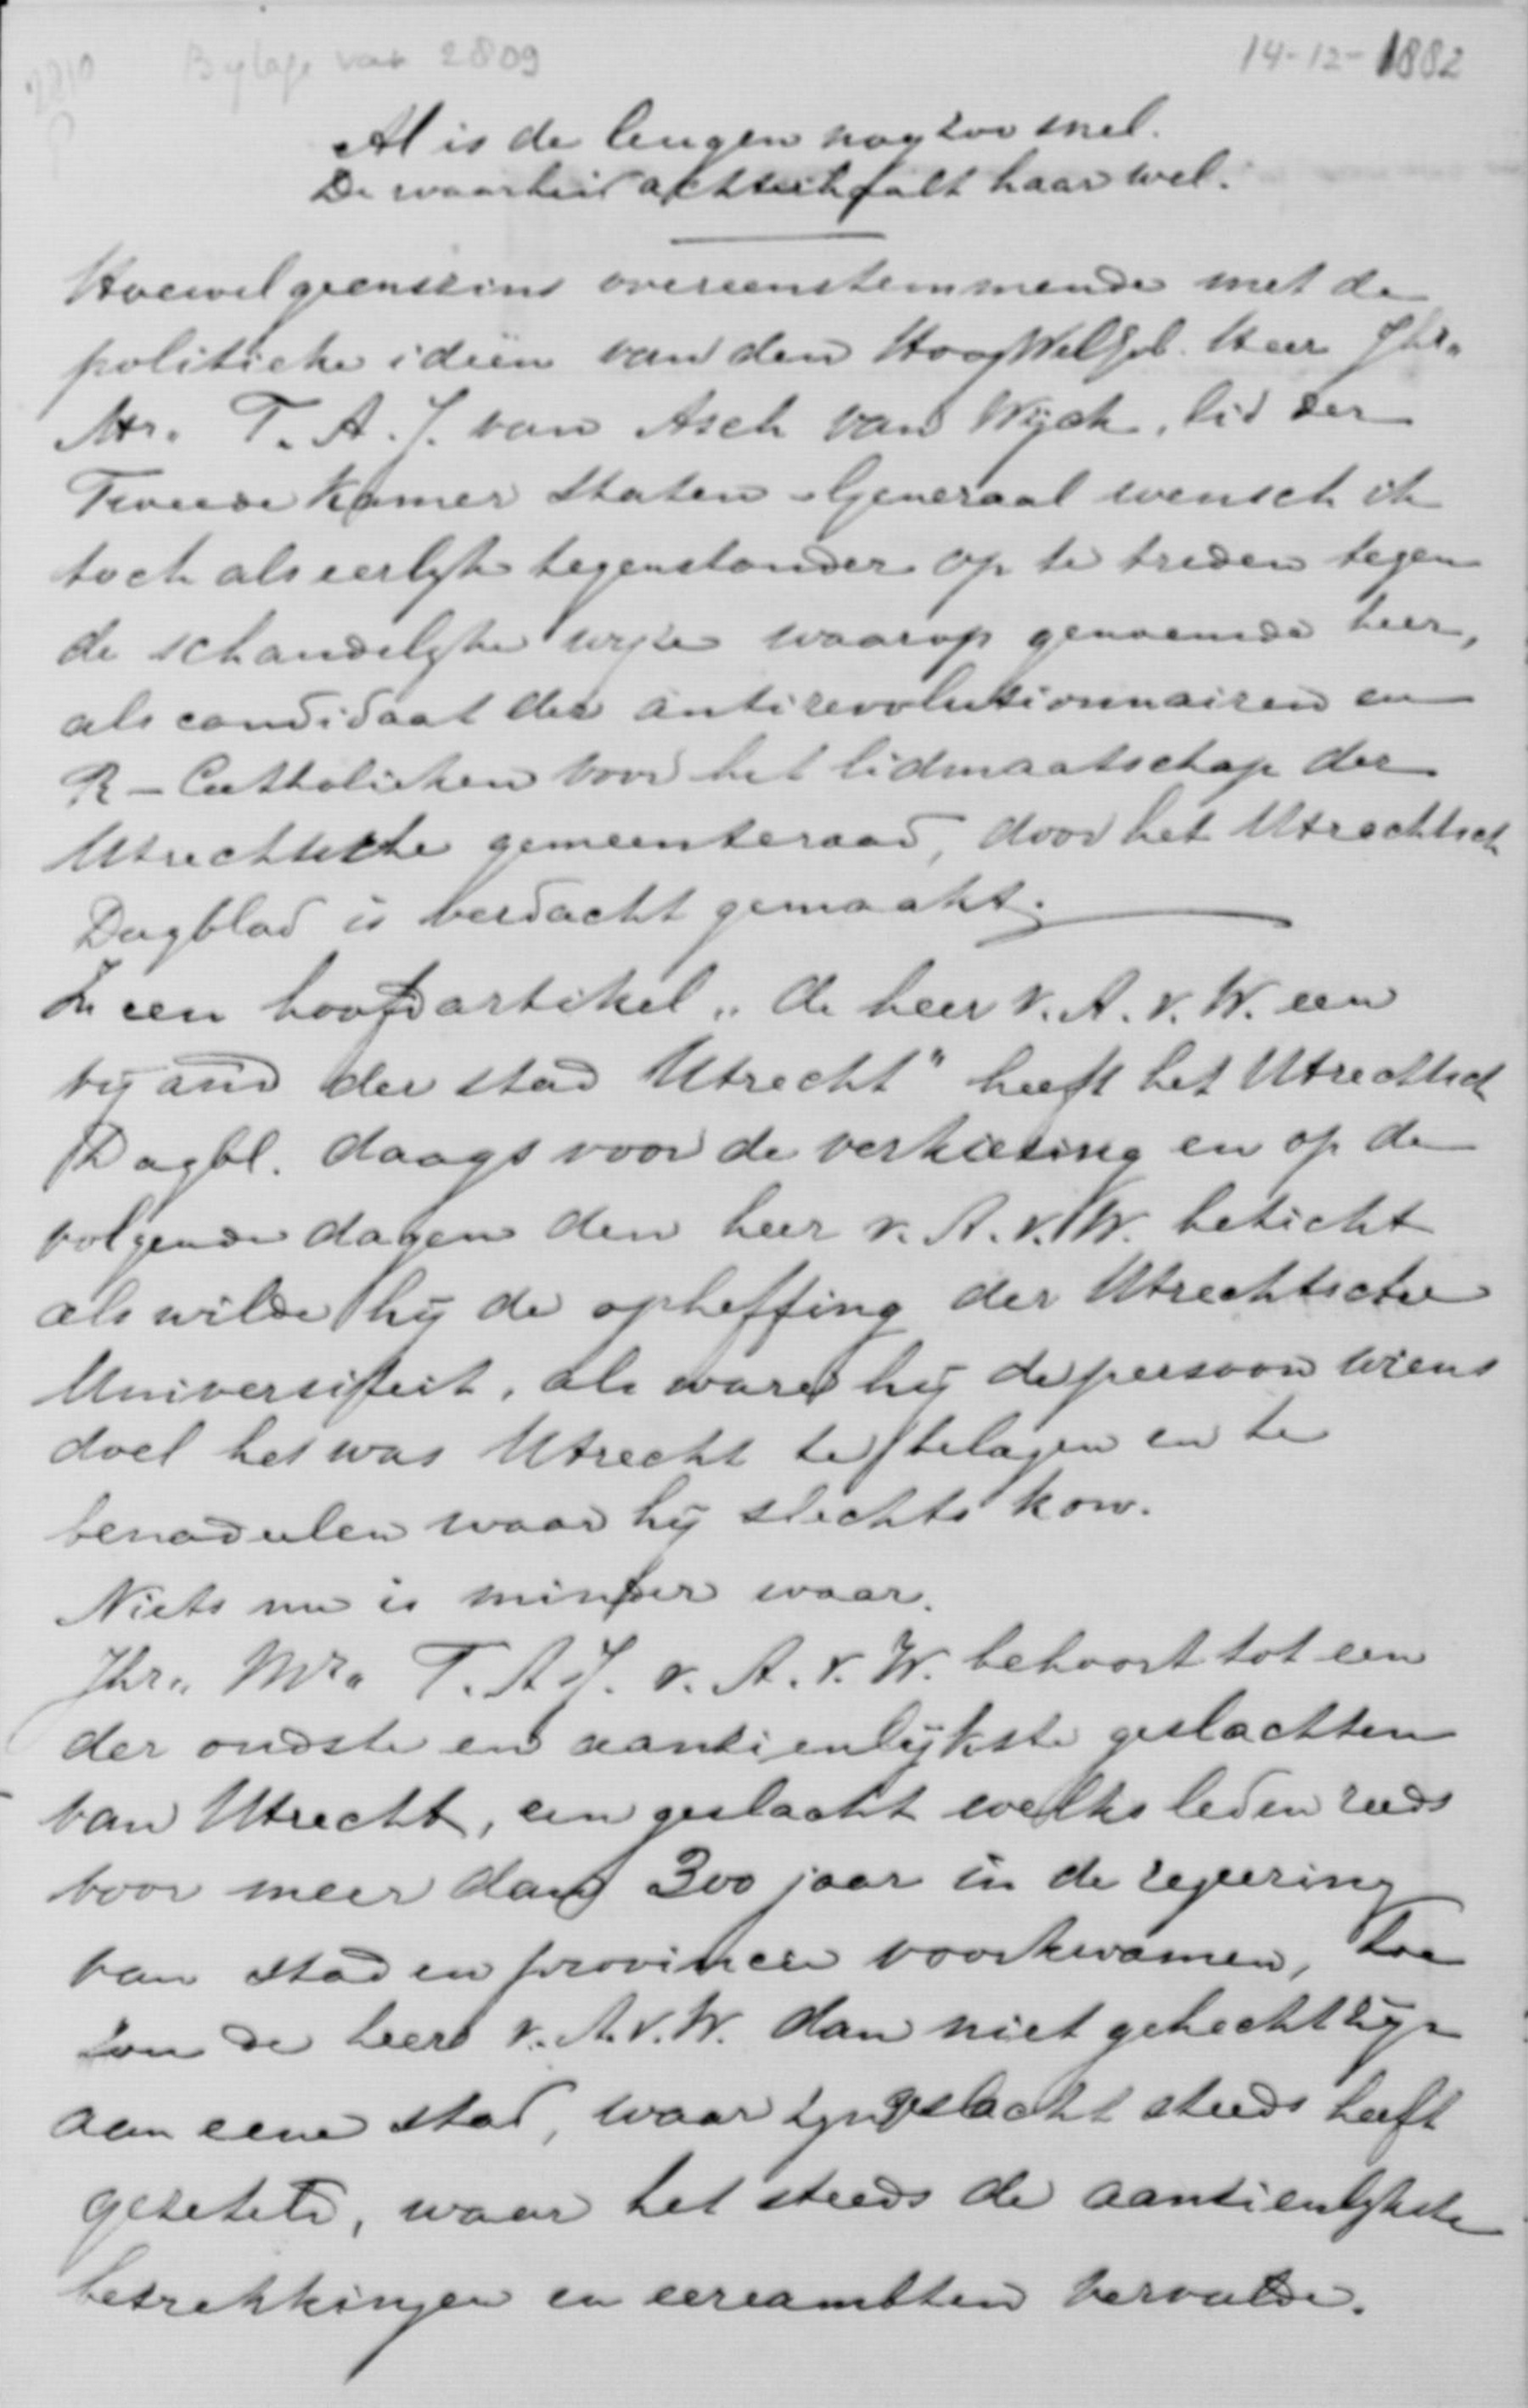 2810
Bylage van 2809
14-12-1882
Al is de leugen nog zoo snel.
De waarheid achterhaalt haar wel.
Hoewel geenszins overeenstemmende met de
politieke ideën van den HoogWelGeb. Heer Jhr.
Mr. T. A. J. van Asch van Wijck, lid der
Tweede Kamer Staten-Generaal wensch ik
toch als eerlyk tegenstander op te treden tegen
de schandelyke wyze waarop genoemde heer,
als candidaat der antirevolutionnairen en
R-Catholieken voor het lidmaatschap der
Utrechtsche gemeenteraad, door het Utrechtsch
Dagblad is verdacht gemaakt.
In een hoofdartikel „de heer v. A. v. W. een
vijand der stad Utrecht" heeft het Utrechtsch
Dagbl. daags voor de verkiezing en op de
volgende dagen den heer v. A. v. W. beticht
als wilde hij de opheffing der Utrechtsche
Universiteit, als ware hij de persoon wiens
doel het was Utrecht te belagen en te
benadeelen waar hij slechts kon.
Niets nu is minder waar.
Jhr. Mr. T. A. J. v. A. v. W. behoort tot een
der oudste en aanzienlijkste geslachten
van Utrecht, een geslacht welks leden reeds
voor meer dan 300 jaar in de regeering
van stad en provincie voorkwamen, hoe
zou de heer v. A. v. W. dan niet gehecht zijn
aan eene stad, waar zyn geslacht steeds heeft
gezeteld, waar het steeds de aanzienlykste
betrekkingen en eereambten vervulde.